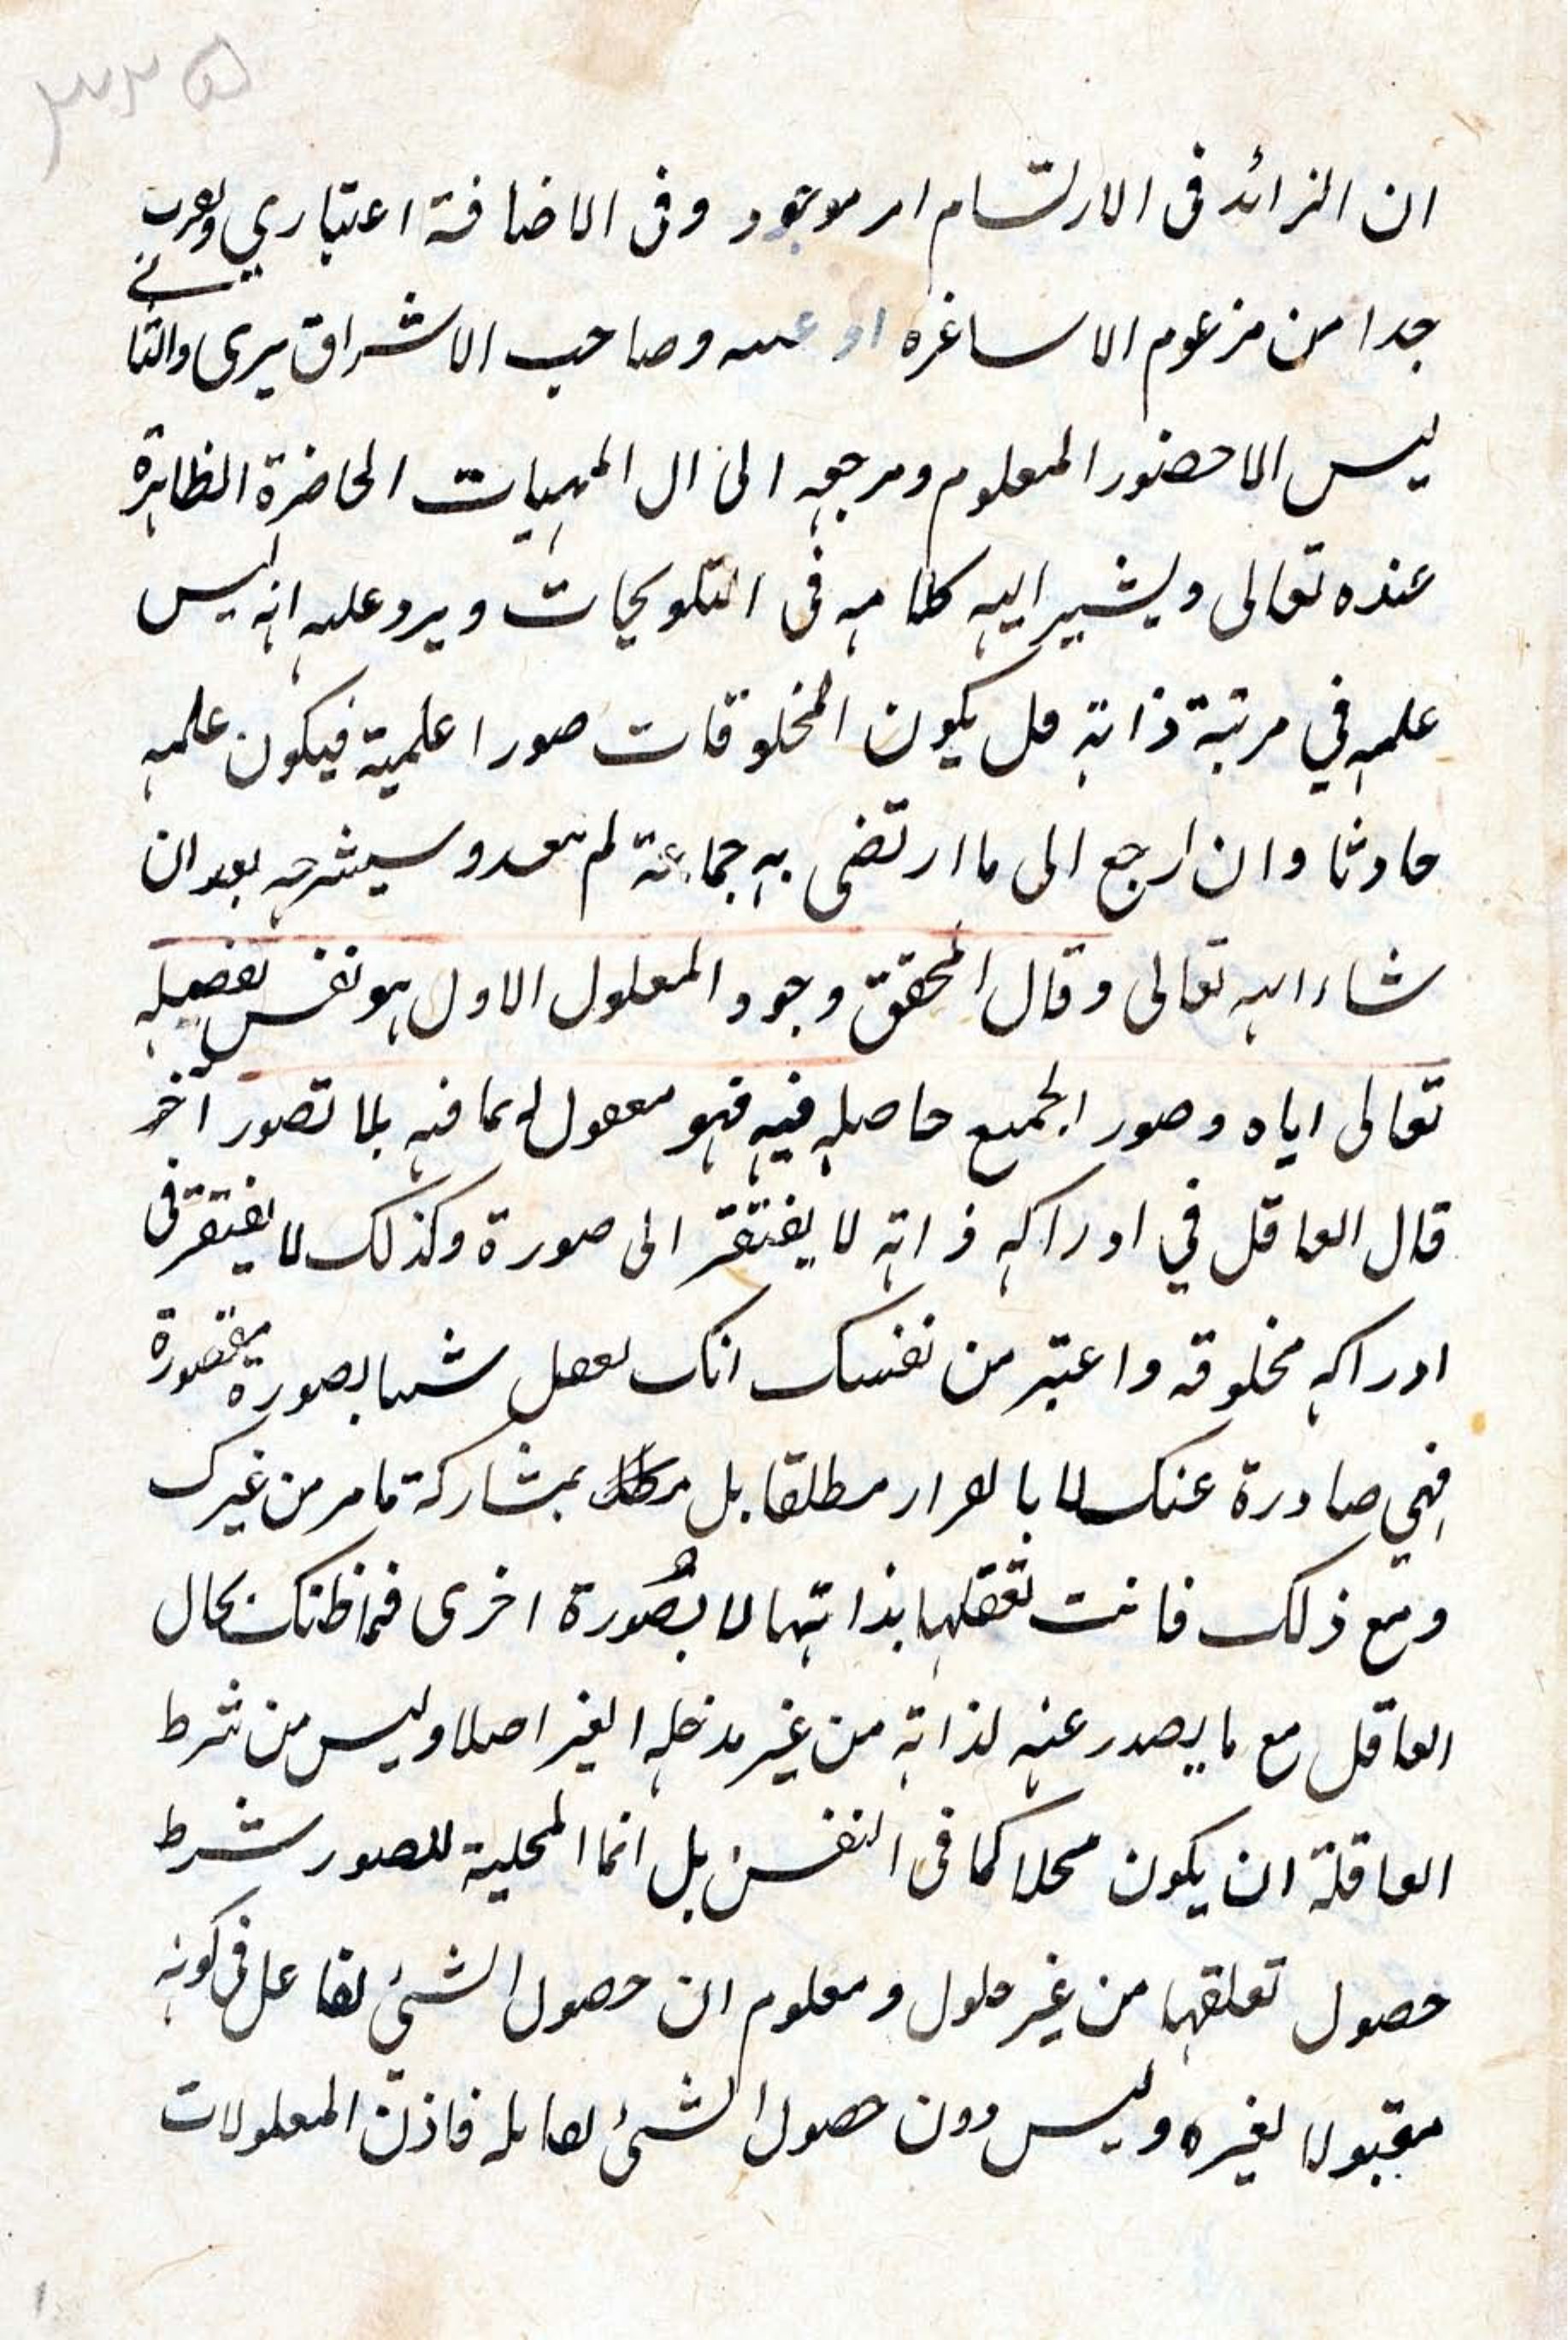 ٣٢٥
ان الزائد فى الارتسام امر موجود وفى الاضافة اعتباري ويقرب
جدا من مزعوم الاساغره او عينه وصاحب الاشراق يرى والثانى
ليس الا حضور المعلوم ومرجعه الى ال المهيات الحاضرة الظاهرة
عنده تعالى ويشير اليه كلامه فى التلويحات ويرد عليه انه ليس
علمه في مرتبة ذاته بل يكون المخلوقات صورا علمية فيكون علمه
حادثا وان ارجع الى ما ارتضى به جماعة لم يبعد وسيشرحه بعد ان
شاء الله تعالى وقال المحقق وجود المعلول الاول هو نفس تفصيله
تعالى اياه وصور الجميع حاصله فيه فهو معقول له بما فيه بلا تصور آخر
قال العاقل في ادراكه ذاته لا يفتقر الى صورة وكذلك لا يفتقر فى
ادراكه مخلوقه واعتبر من نفسك انك تعقل شيئا بصورة
فهي صادرة عنك لا بانفراد مطلقا بل بمشاركة ما من غيرك
ومع ذلك فانت تعقلها بذاتها لا بصورة اخرى فما ظنك بحال
العاقل مع ما يصدر عنه لذاته من غير مدخله الغير اصلا وليس من شرط
العاقلة ان يكون محلا كما فى النفس بل انما المحلية للصور شرط
حصول تعلقها من غير حلول ومعلوم ان حصول الشيئ لفاعل فى كونه
مقبولا لغيره وليس دون حصول الشيئ لقابله فاذن المعلولات